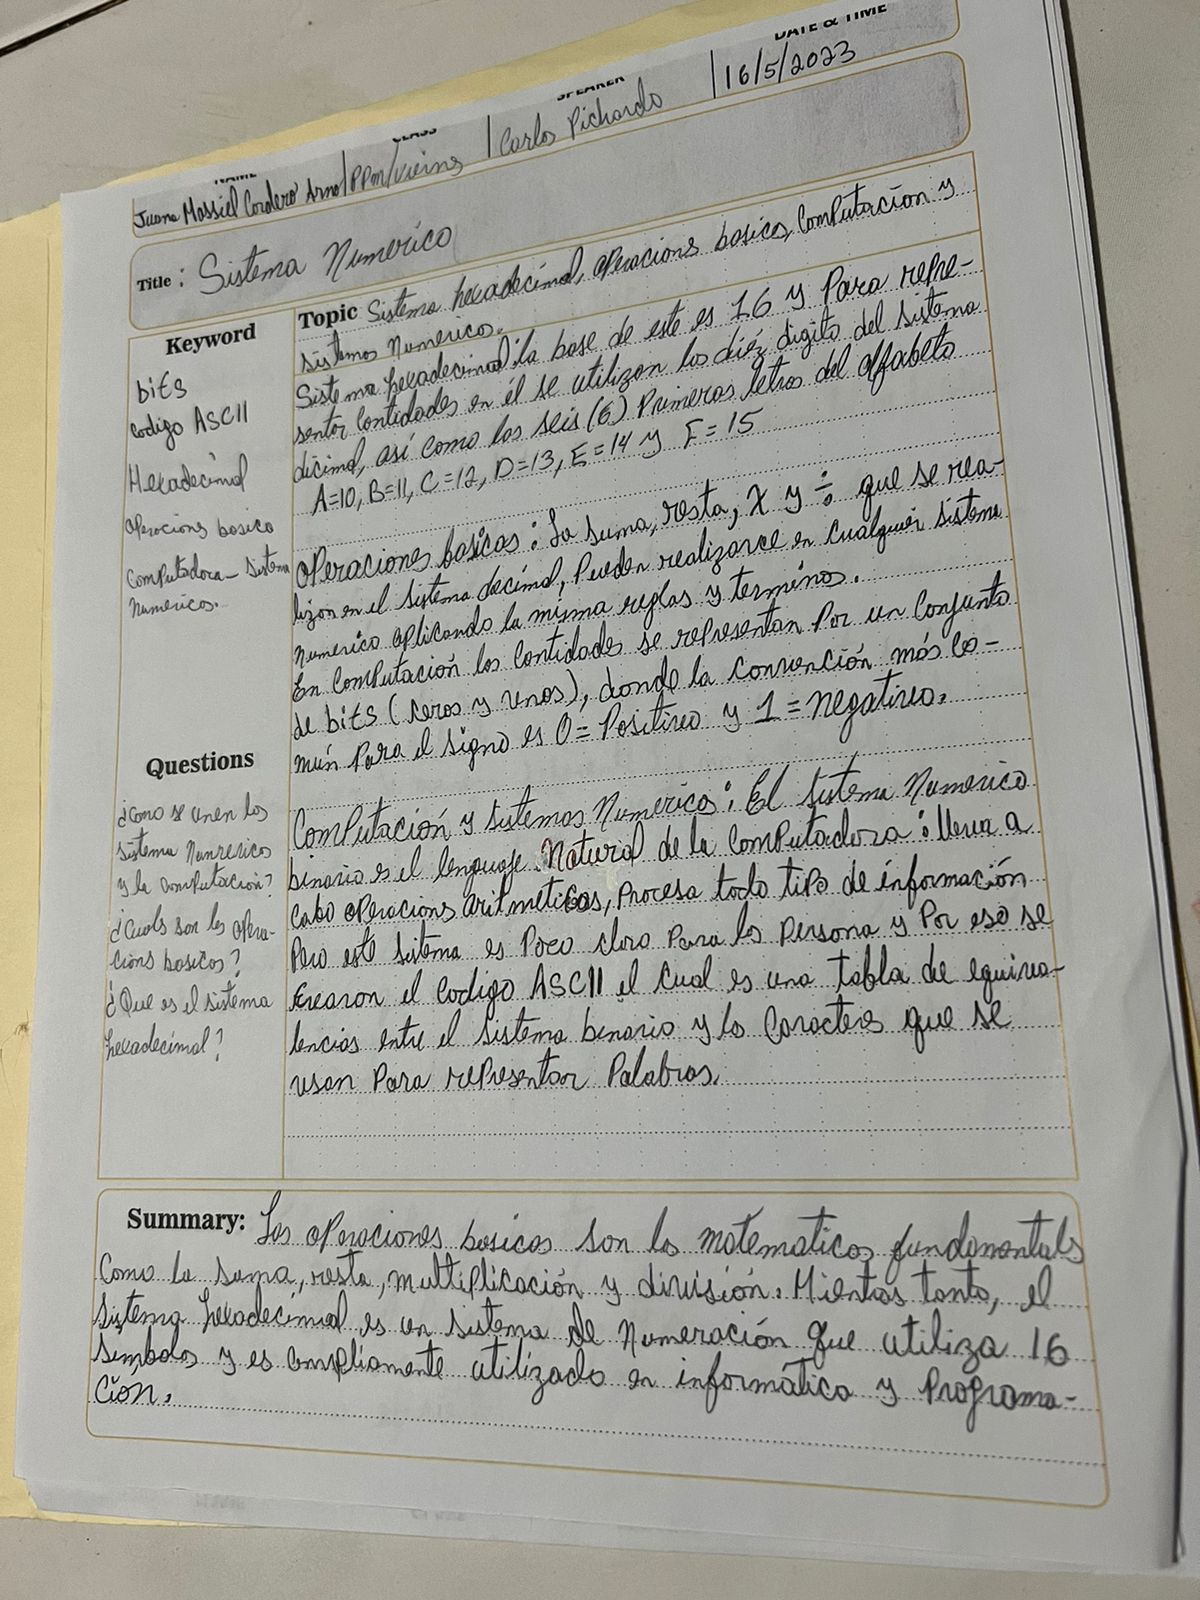 NAME CLASS SPEAKER DATE & TIME
Juana Massiel Cordero Arno/PPM/ | Carlos Pichardo | 16/5/2023
Title: Sistema Numerico
Keyword
bits
codigo ASCII
Hexadecimal
Operacions basico
Computadora - Sistema
Numericos.
Questions
¿Como se unen los
sistema Numericos
y la computacion?
¿Cuals son ls opera-
cions basicos?
¿Que es el sistema
hexadecimal?
Topic Sistema hexadecimal, operacions basica, Computacion y
sistemas Numericos.
Sistema hexadecimal: la base de este es 16 y Para repre-
sentar Contidades en él se utilizan los diéz digito del sistema
décimal, así como los seis (6) Primeros letras del alfabeto
A=10, B=11, C=12, D=13, E=14 y F=15
Operaciones basicas: La suma, resta, X y ÷ que se rea-
lizan en el sistema decimal, Pueden realizarce en cualquier sistema
Numerico aplicando la misma reglas y terminos.
En Computación las Contidades se representan Por un Conjunto
de bits (ceros y unos), donde la convención más co-
mún Para el signo es 0 = Positivo y 1 = negativo.
Computación y sistemas Numerico: El sistema Numerico
binario es el lenguaje Natural de la computadora: lleva a
Cabo operacions aritmeticas, Procesa todo tipo de información
Pero este sistema es Poco claro Para ls Persona y Por eso se
Crearon el Codigo ASCII el cual es una tabla de equiva-
lencias entre el sistema binario y ls Caracters que se
usan Para representar Palabras.
Summary: Las operaciones basicas son ls matematicas fundamentals
Como la suma, resta, multiplicación y división. Mientras tanto, el
sistema hexadecimal es un sistema de Numeración que utiliza 16
Simbolos y es ampliamente utilizado en informática y Programa-
ción.